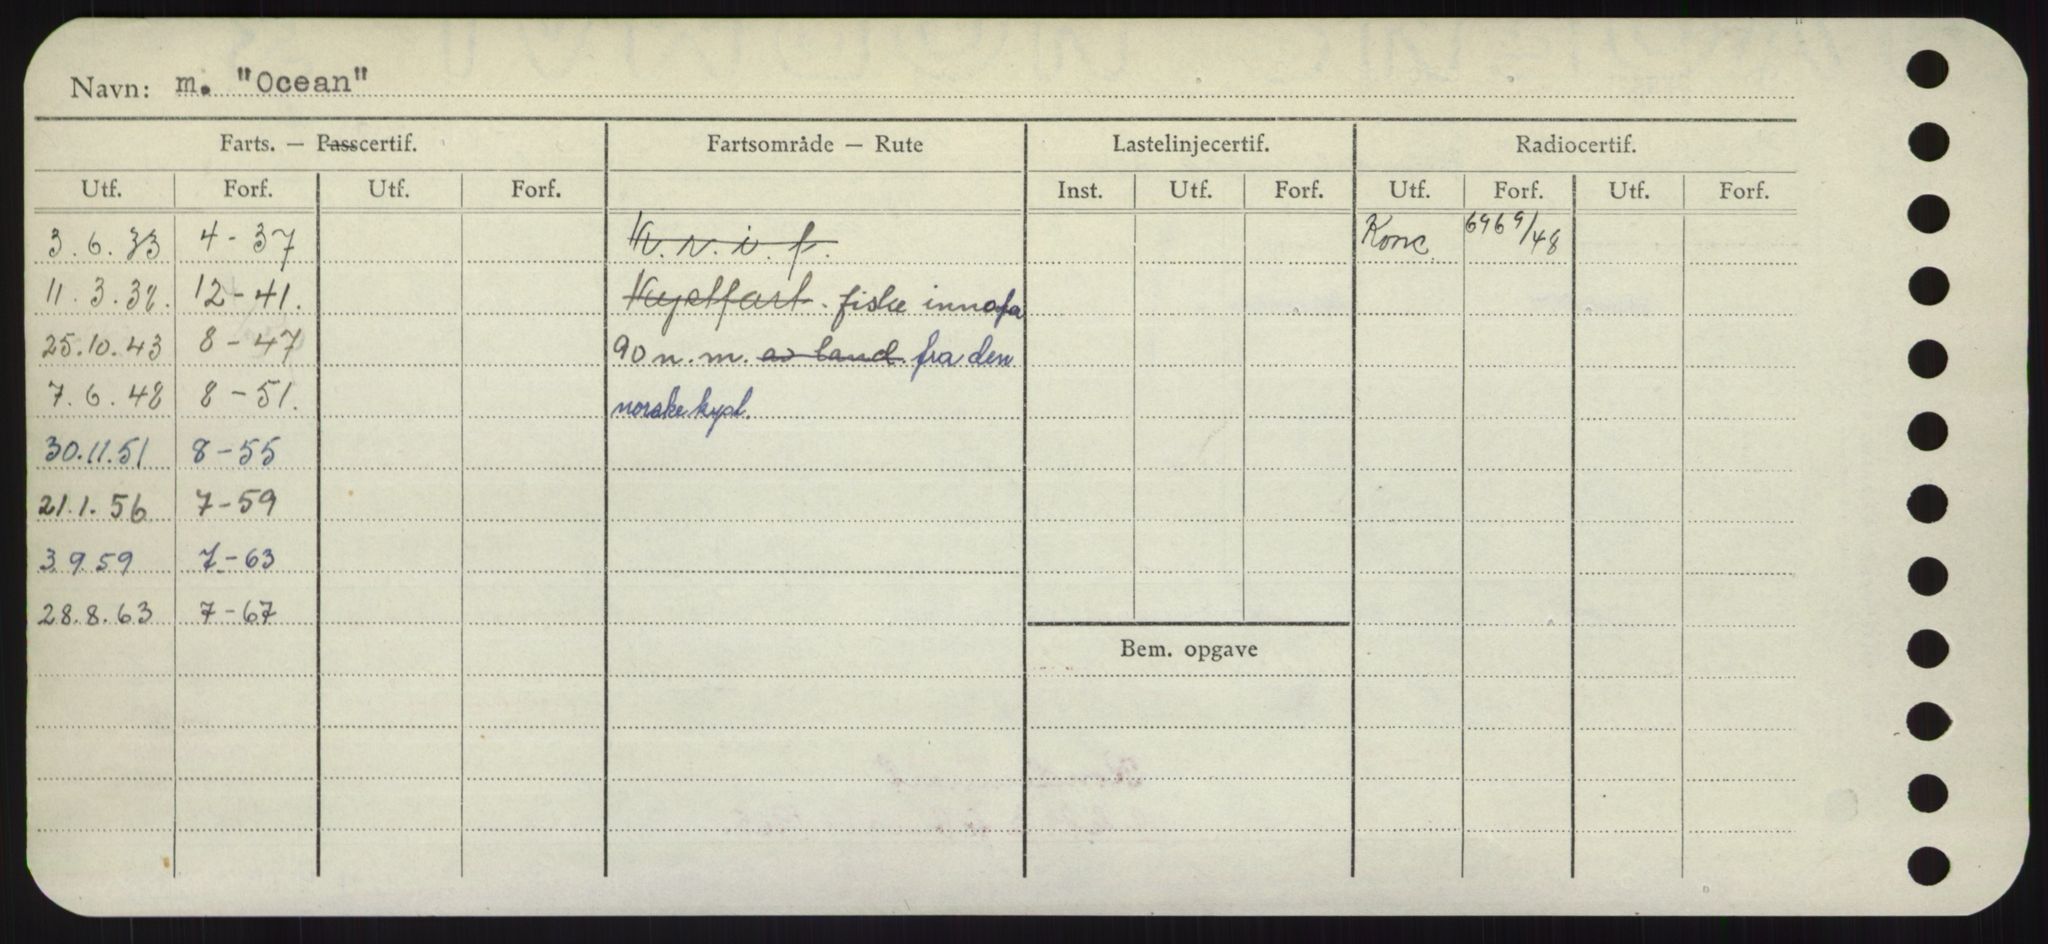 Navn: m. "Ocean"
Farts. — Passcertif. Fartsområde — Rute Lastelinjecertif. Radiocertif.
Utf. Forf. Utf. Forf. Inst. Utf. Forf. Utf. Forf. Utf. Forf.
3.6.33 4-37 K.v.i.f. Konc. 6969/48
11.3.38. 12-41. Kystfart. fiske innafor
25.10.43 8-47 90 n.m. av land. fra den
7.6.48 8-51. norske kyst.
30.11.51 8-55
21.1.56 7-59
3 9 59 7-63
28.8.63 7-67
Bem. opgave